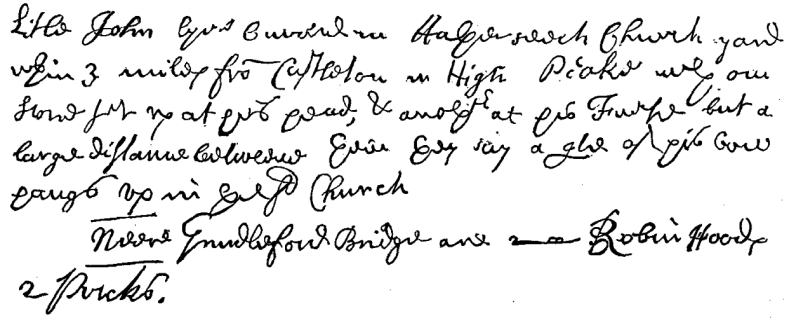 Litle John lyes buried in Hathersech Church yard
wthin 3 miles frō Castleton in High Peake wth one
stone set vp at his head, & anothr at his Feete but a
large distance betweene them They say a pte of his bow
hangs vp in the sd Church
Neere Grindleford Bridge are Robin Hoods
2 Pricks.